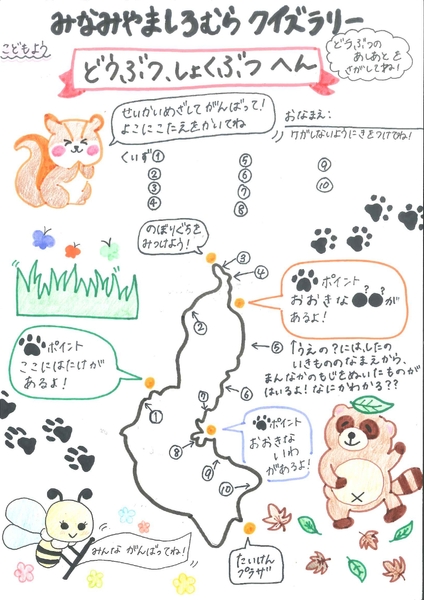 みなみやましろむら クイズラリー
こどもよう
どうぶつ、しょくぶつ へん
どうぶつの
あしあとを
さがしてね!
せいかいめざして がんばって!
よこにこたえをかいてね
おなまえ:
ケガしないようにきをつけてね!
くいず①
②
③
④
⑤
⑥
⑦
⑧
⑨
⑩
のぼりぐちを
みつけよう!
③
④
ポイント
おおきな●●が
あるよ!
? ?
②
⑤
↑うえの?には、したの
いきもののなまえから、
まんなかのもじをぬいたものが
はいるよ!なにかわかる??
ポイント
ここにはたけが
あるよ!
①
⑦
⑥
⑧
ポイント
おおきな
いわ
があるよ!
⑨
⑩
みんな がんばってね!
たいけん
プラザ